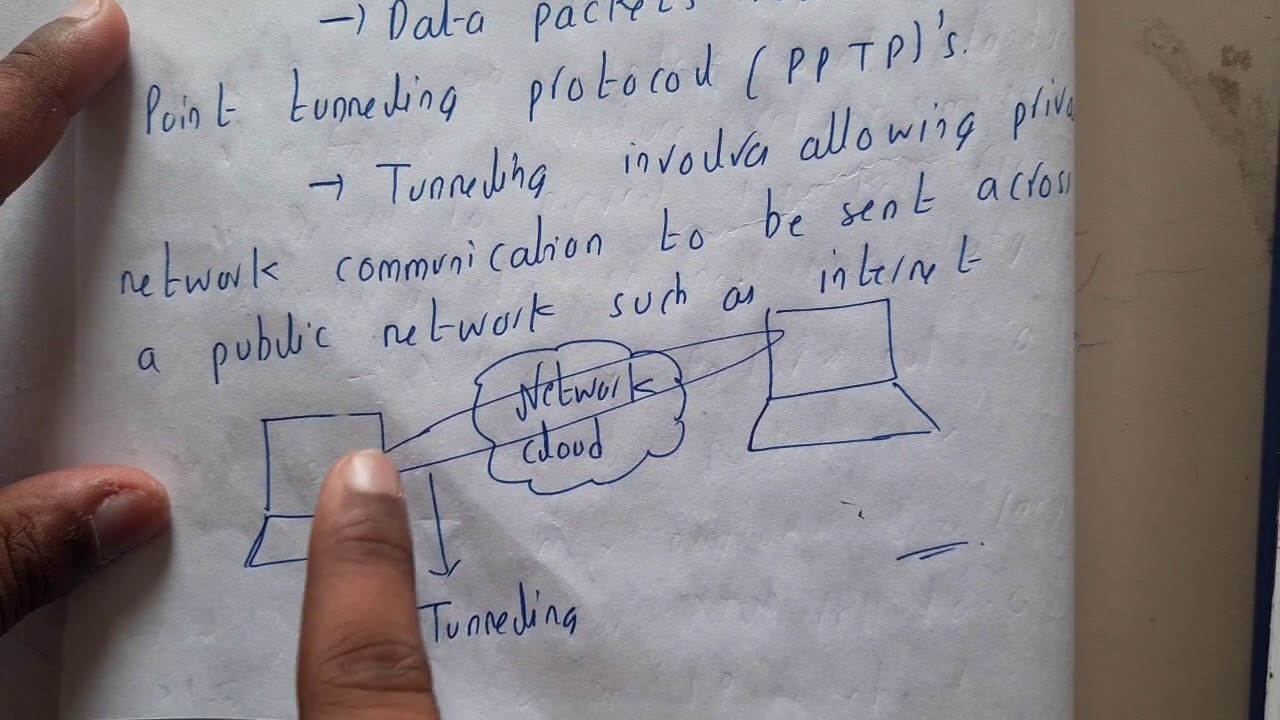 → Data packets
Point tunneling protocol (PPTP)'s.
→ Tunneling involves allowing priva
network communication to be sent across
a public network such as internet
Network
cloud
Tunneling